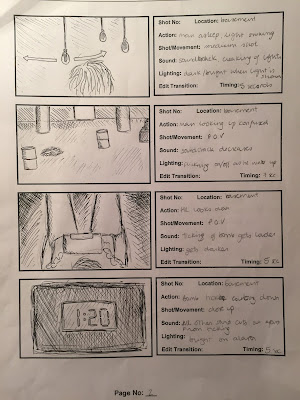 Shot No: Location: basement
Action: man asleep, light swinging
Shot/Movement: medium shot
Sound: soundtrack, swinging of lights
Lighting: dark/bright when light is
Edit Transition: Timing: 5 seconds
Shot No: Location: basement
Action: man looking up confused
Shot/Movement: P.O.V
Sound: soundtrack decreases
Lighting: flickering on/off
Edit Transition: Timing:
Shot No: Location: basement
Action: He looks down
Shot/Movement: P.O.V
Sound: ticking of bomb gets louder
Lighting: gets darker
Edit Transition: Timing: 5
1:20
Shot No: Location: basement
Action: bomb counting down
Shot/Movement: close up
Sound: All other apart
from ticking
Lighting: bright on
Edit Transition: Timing: 5
Page No: 2